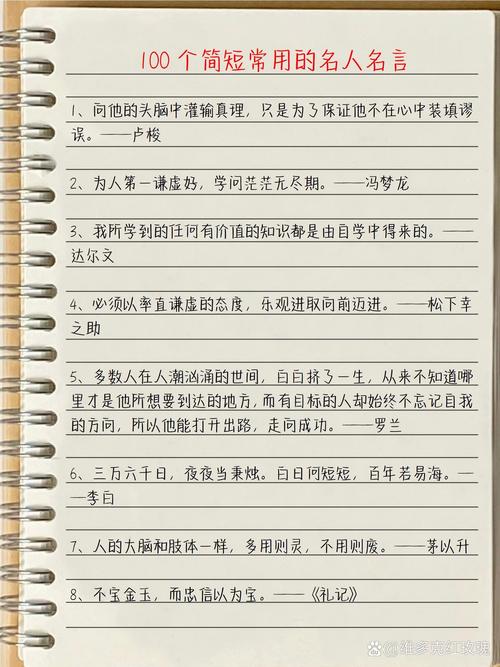 100个简短常用的名人名言
1、向他的头脑中灌输真理，只是为了保证他不在心中装填谬
误。——卢梭
2、为人第一谦虚好，学问茫茫无尽期。——冯梦龙
3、我所学到的任何有价值的知识都是由自学中得来的。——
达尔文
4、必须以率直谦虚的态度，乐观进取向前迈进。——松下幸
之助
5、多数人在人潮汹涌的世间，白白挤了一生，从来不知道哪
里才是他所想要到达的地方，而有目标的人却始终不忘记自我
的方向，所以他能打开出路，走向成功。——罗兰
6、三万六千日，夜夜当秉烛。白日何短短，百年若易海。—
—李白
7、人的大脑和肢体一样，多用则灵，不用则废。——茅以升
8、不宝金玉，而忠信以为宝。——《礼记》
维多克红玫瑰